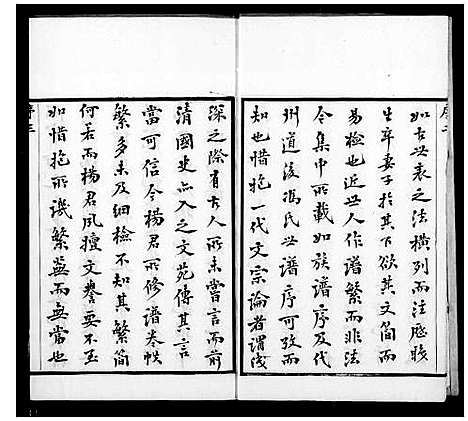 如古世表之法橫列而注歷職
生卒妻子於其下欲其文簡而
易檢也近世人作譜繁而非法
今集中所載如族譜序及代
州道後馮氏世譜序可攷而
知也惜抱一代文宗論者謂淺
深之際有古人所未嘗言而前
清國史亦入之文苑傳其言
當可信今楊君所修譜卷帙
繁多未及細檢不知其繁簡
何若而楊君夙擅文譽要不至
如惜抱所譏繁蕪而無當也
序二
序三